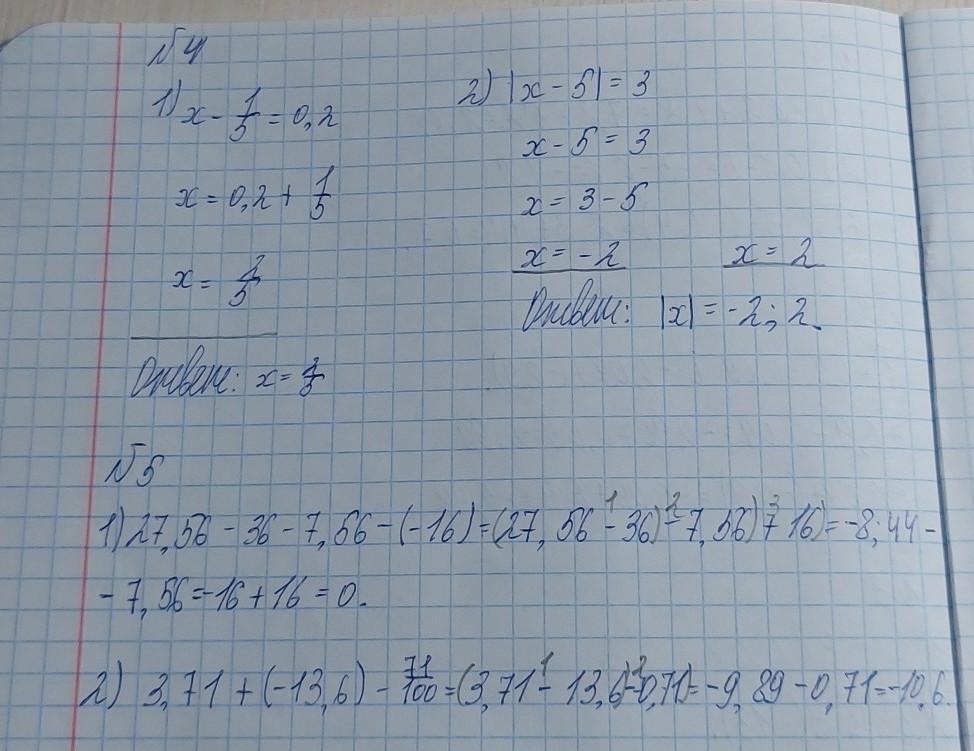 №4
1) x - 1/5 = 0,2
x = 0,2 + 1/5
x = 2/5
Ответ: x = 2/5
2) |x - 5| = 3
x - 5 = 3
x = 3 - 5
x = -2 x = 2
Ответ: |x| = -2; 2.
№5
1) 27,56 - 36 - 7,56 - (-16) = (27,56 -¹ 36) -² 7,56) +³ 16) = -8;44 -
- 7,56 = -16 + 16 = 0.
2) 3,71 + (-13,6) - 71/100 = (3,71 -¹ 13,6) -² 0,71) = -9,89 - 0,71 = -10,6.